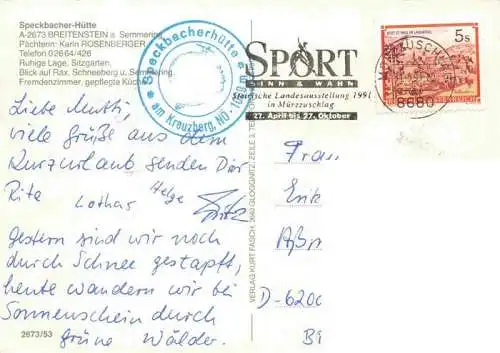 Speckbacher-Hütte
A-2673 BREITENSTEIN a. Semmering
Pächterin: Karin ROSENBERGER
Telefon 02664/426
Ruhige Lage, Sitzgarten.
Blick auf Rax, Schneeberg u. Semmering
Fremdenzimmer, gepflegte Küche
Speckbacherhütte
am Kreuzberg, NÖ
SPORT
SINN & WAHN
Steirische Landesausstellung 1991
in Mürzzuschlag
27. April bis 27. Oktober
8680
5s
Liebe Mutti,
viele Grüße aus dem
Kurzurlaub senden Dir
Rita Lothar Helga Fritz
Gestern sind wir noch
durch Schnee gestapft,
heute wandern wir bei
Sonnenschein durch
grüne Wälder.
2673/53
VERLAG KURT FASCH, 2640 GLOGGNITZ, ZEILE 3, TEL.
Frau
D-6200